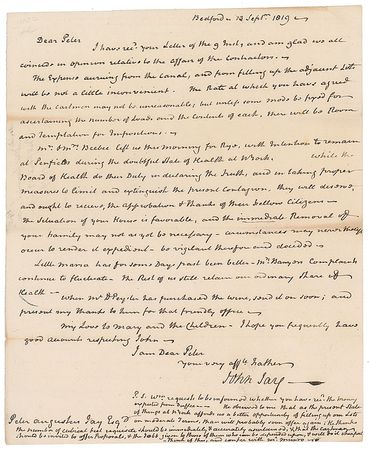 Bedford – 13 Sept. 1819 –
Dear Peter
I have recd. your Letter of the 9 Inst, and am glad we all
coincide in opinion relative to the Affair of the Contractors. –
The Expense accruing from the Canal, and from filling up the adjacent Lots
will be not a little inconvenient. The Rate at which you have agreed
with the cartmen may not be unreasonable, but unless some mode be fixed for
ascertaining the number of Loads and the content of each, there will be Room
and Temptation for Impositions. –
Mr. & Mrs. Beebee left us this morning for Rye, with Intention to remain
at during the doubtful State of Health at N York. while the
Board of Health do their Duty in declaring the Truth, and in taking proper
measures to limit and extinguish the present contagion, they will deserve,
and ought to receive, the Approbation & Thanks of their fellow Citizens –
the Situation of your House is favorable, and the immediate Removal of
your Family may not as yet be necessary – circumstances may nevertheless
occur to render it expedient – be vigilant therefore and decided –
Little Maria has for some Days past been better – Complaints
continue to fluctuate – The Rest of us still retain our ordinary Share of
Health –
when Mr. D Peyster has purchased the wine, send it on soon; and
present my Thanks to him for that friendly office –
My Love to Mary and the Children – I hope you frequently have
good accounts respecting John –
I am Dear Peter
Your very affte. Father
John Jay –
P.S. Wm. requests to be informed whether you have recd. the money
expected from –
It occurred to me that as the present State
of things at N York affords us a better opportunity of filling up our Lots
Peter Augustus Jay Esqr. on moderate Terms, than will probably soon offer again;